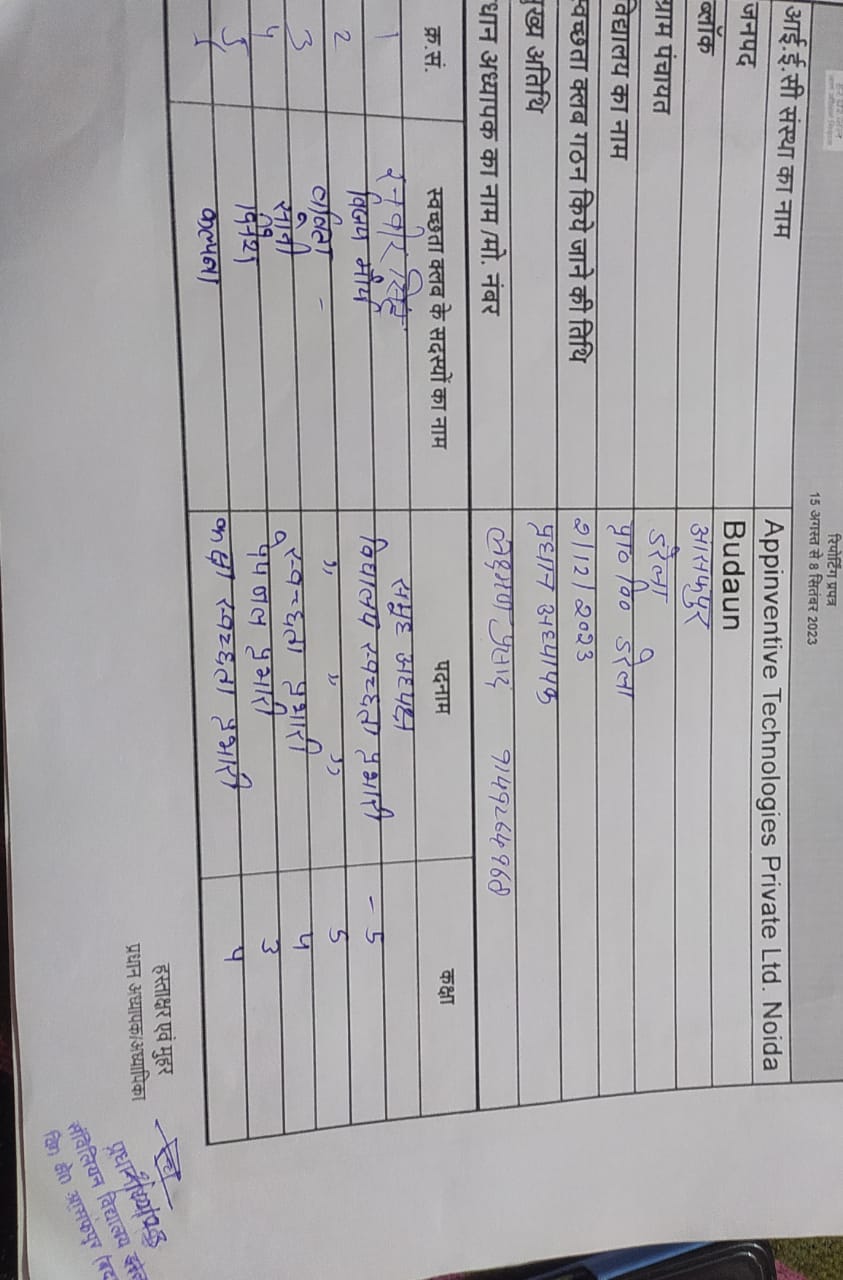 रिपोर्टिंग प्रपत्र
15 अगस्त से 8 सितंबर 2023
आई.ई.सी संस्था का नाम Appinventive Technologies Private Ltd. Noida
जनपद Budaun
ब्लॉक आसफपुर
ग्राम पंचायत डरैला
विद्यालय का नाम प्रा० वि० डरैला
स्वच्छता क्लब गठन किये जाने की तिथि 2/12/2023
मुख्य अतिथि प्रधान अध्यापक
धान अध्यापक का नाम /मो. नंबर लक्ष्मण प्रसाद
क्र.सं. स्वच्छता क्लब के सदस्यों का नाम पदनाम कक्षा
समूह अध्यक्ष
1 विद्यालय स्वच्छता प्रभारी - 5
2 " " " 5
3 स्वच्छता प्रभारी 4
4 पेयजल प्रभारी 3
5 कल्पना कक्षा स्वच्छता प्रभारी 4
हस्ताक्षर एवं मुहर
प्रधान अध्यापक/अध्यापिका
प्रधानाध्यापक
संविलियन विद्यालय
वि० क्षे० आसफपुर